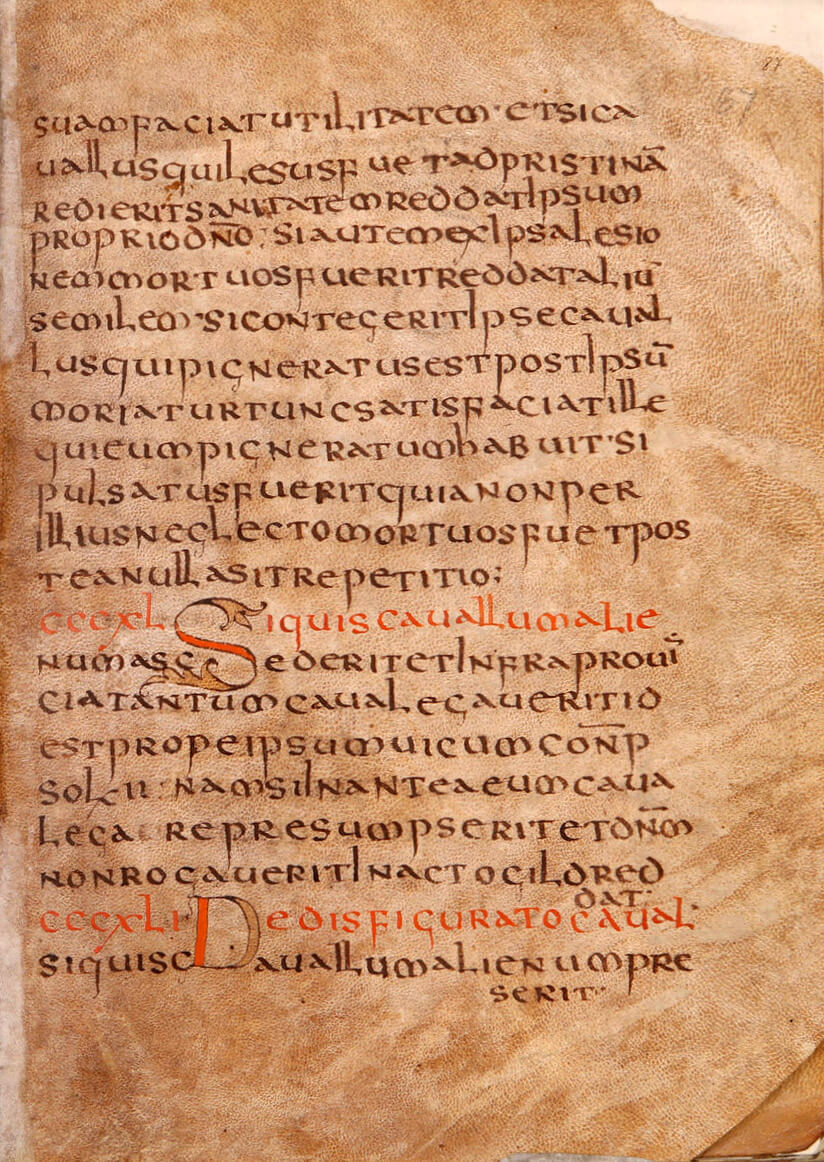 87
57
suamfaciatutilitatem·etsica
uallusquilesusfuetadpristinā
redieritsanitatemreddatipsum
propriodn̄o; siautemexipsalesio
nemmortuosfueritreddataliū
semilem·sicontegeritipsecaual
lusquipigneratusestpostipsū
moriaturtuncsatisfaciatille
quieumpigneratumhabuit·si
pulsatusfueritquianonper
illiusneglectomortuosfuetpos
teanullasitrepetitio;
cccxl Siquiscauallumalie
numasceederitetinfraproui
ciatantumcaualegaueritid
estpropeipsumuicumcon̄p
solxii· namsiinanteaeumcaua
lega represumpseritetdn̄m
nonrogaueritinactogildred
dat·
cccxli Dedisfiguratocaual
siquiscauallumalienumpre
serit·